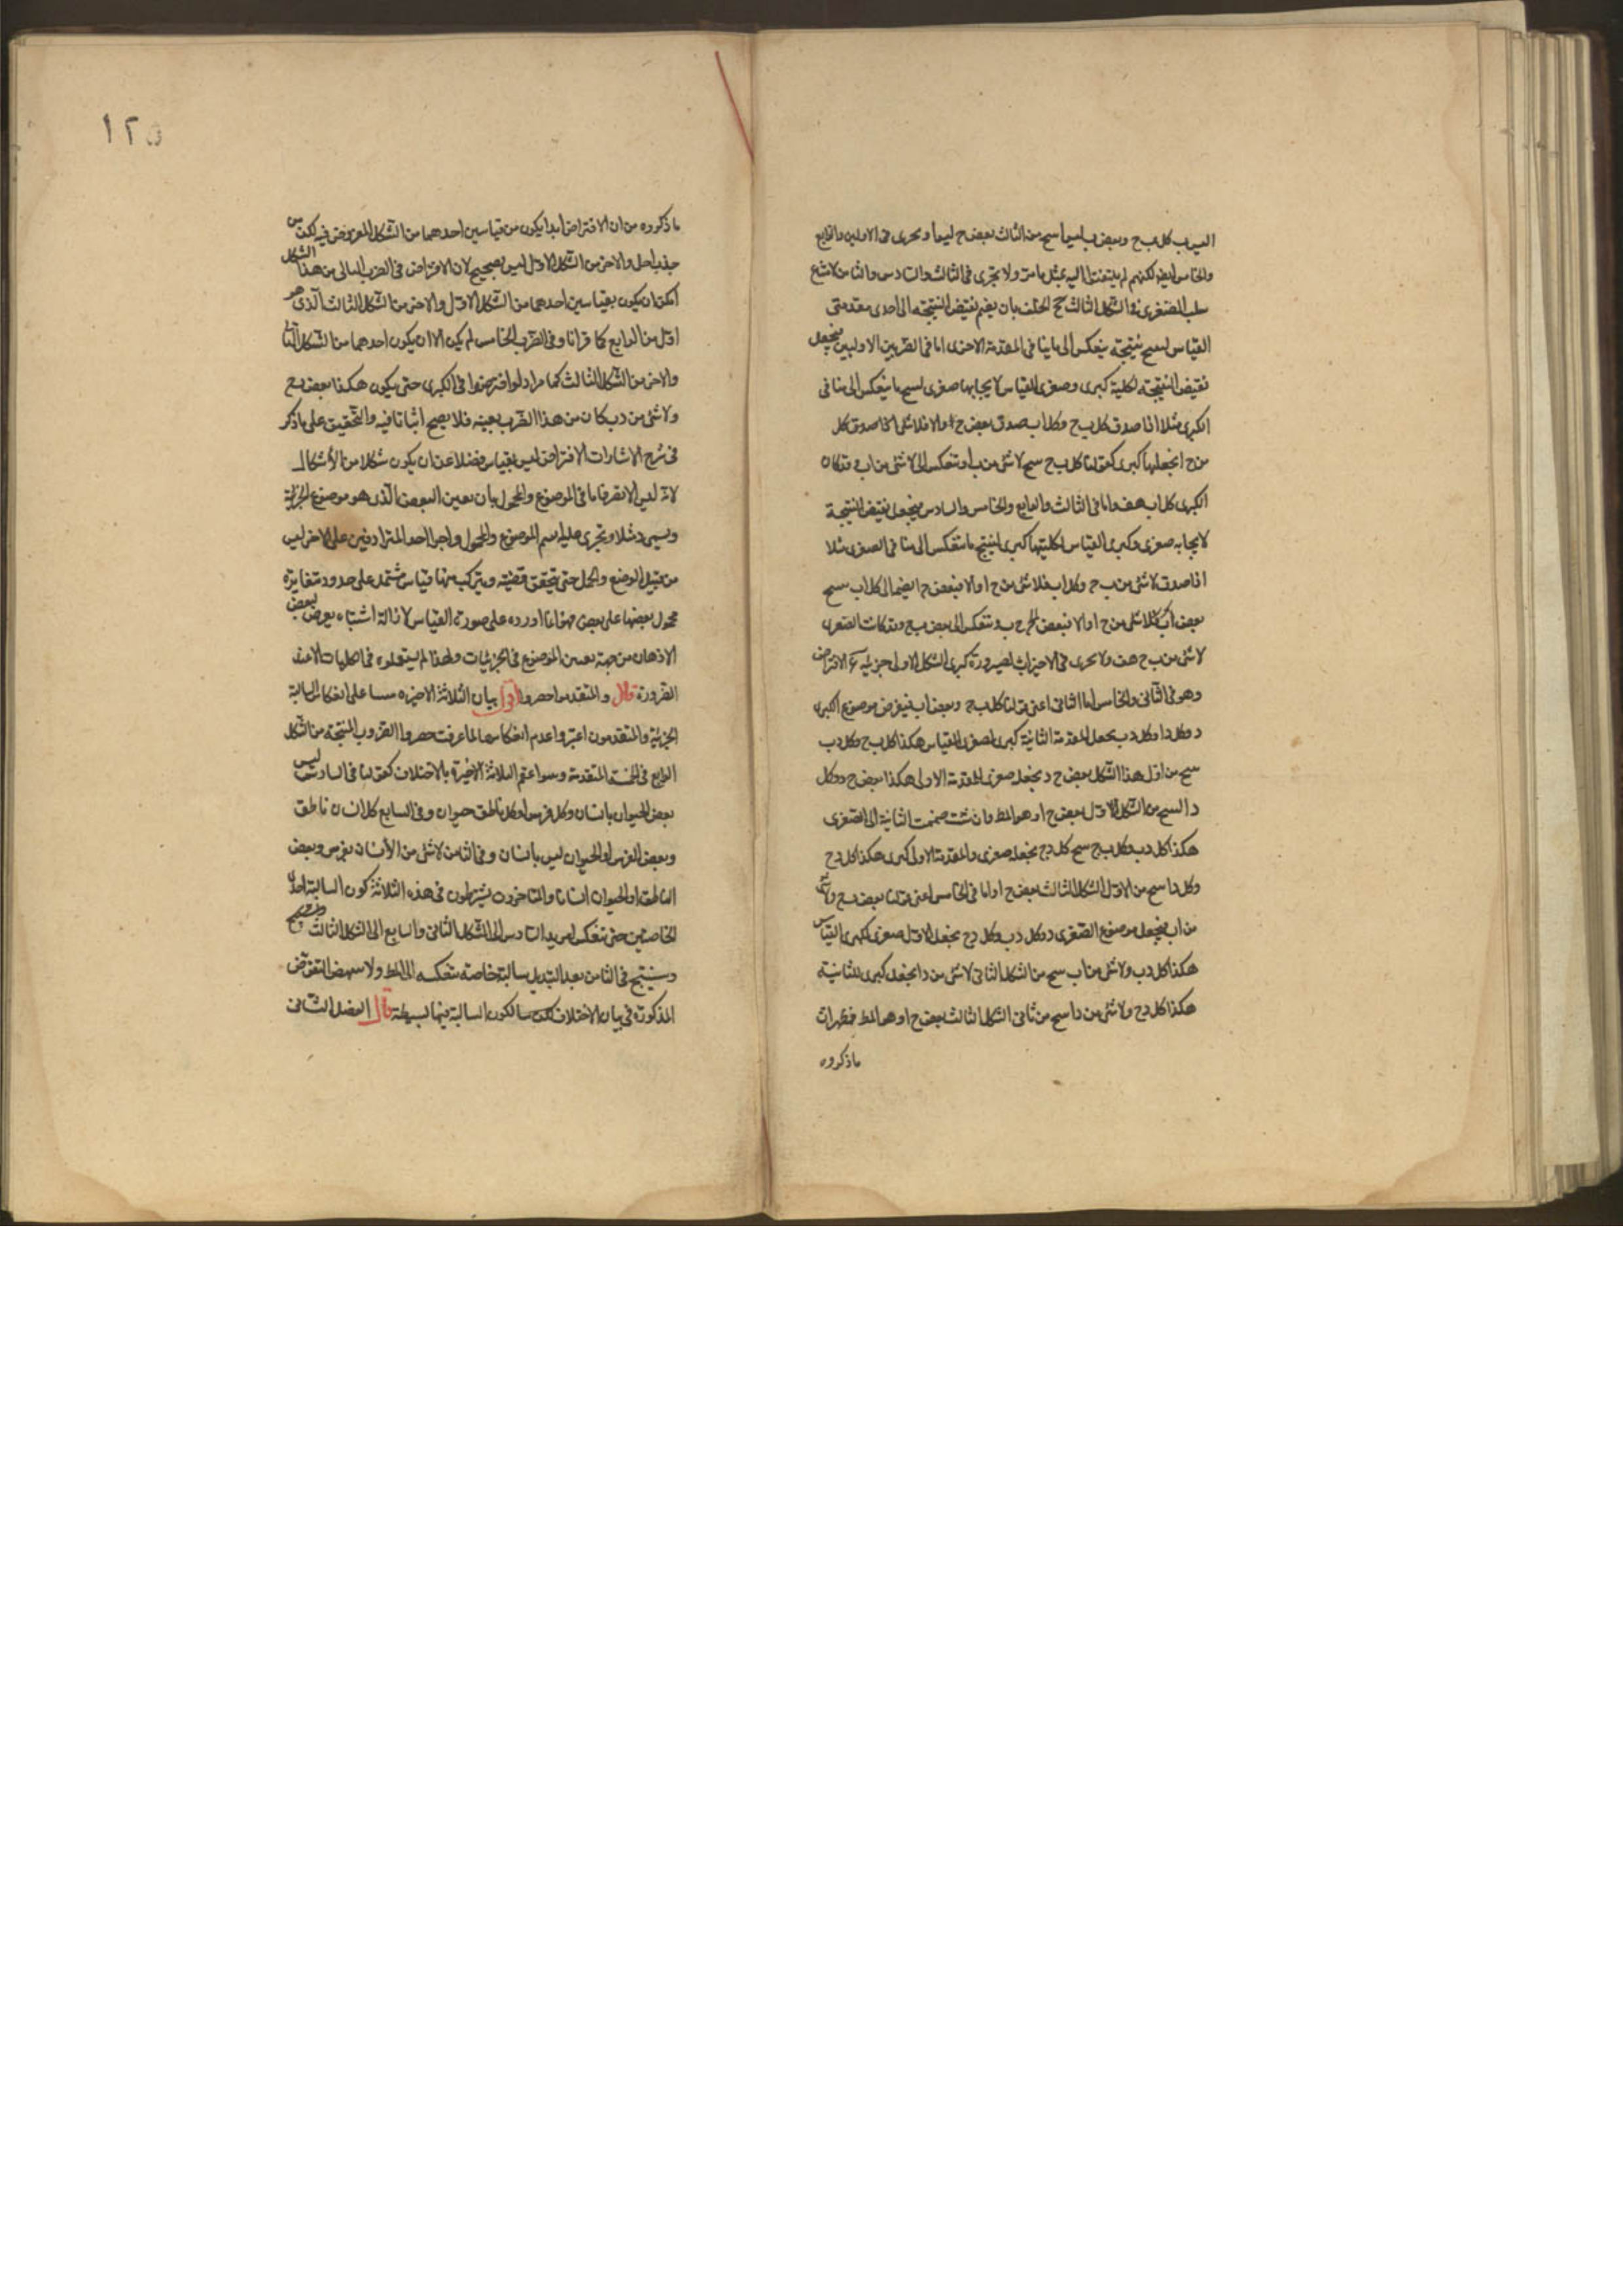 وبعض ب ليس ا ينتج من الثالث بعض ج ليس ا ويجرى فى الاولين والرابع
والخامس ايضا لكنهم لم يلتفتوا اليه بمثل ما مر ولا يجرى فى الثالث والسادس والثامن
سلب الصغرى فى الشكل الثالث ج الخلف بان يضم نقيض النتيجة الى احدى مقدمتى
القياس لينتج نتيجة ينعكس الى ما ينافى المقدمة الاخرى اما فى الضربين الاولين فيجعل
نقيض النتيجة لكليته كبرى وصغرى القياس لايجابها صغرى لينتج ما ينعكس الى منافى
الكبرى مثلا اذا صدق كل ب ج وكل ا ب صدق بعض ج ا والا فلا شئ
من ج ا نجعلها كبرى لقولنا كل ب ج ينتج لا شئ من ب ا وتنعكس الى لا شئ من ا ب وقد كان
الكبرى كل ا ب هف واما فى الثالث والرابع والخامس والسادس فيجعل نقيض النتيجة
لايجابه صغرى وكبرى القياس لكليتها كبرى لينتج ما ينعكس الى منافى الصغرى مثلا
اذا صدق لا شئ من ب ج وكل ا ب فلا شئ من ج ا والا فبعض ج ا يضم الى كل ا ب ينتج
لا شئ من ب ج هف ولا يجرى فى الاخيرات لصيرورة كبرى الشكل الاول جزئية د الافتراض
وهو فى الثانى والخامس اما الثانى اعنى قولنا كل ب ج وبعض ا ب فيفرض موضوع الكبرى
د وكل د ا وكل د ب يجعل المقدمة الثانية كبرى لصغرى القياس هكذا كل ب ج وكل د ب
ينتج من اول هذا الشكل بعض ج د نجعله صغرى للمقدمة الاولى هكذا بعض ج د وكل
د ا لينتج من الشكل الاول بعض ج ا وهو المط وان شئت ضممت الثانية الى الصغرى
هكذا كل د ب وكل ب ج ينتج كل د ج نجعله صغرى والمقدمة الاولى كبرى هكذا كل د ج
وكل د ا ينتج من الاول الشكل الثالث بعض ج ا واما فى الخامس اعنى قولنا بعض ب ج ولا شئ
من ا ب فيجعل موضوع الصغرى د وكل د ب وكل د ج نجعل الاول صغرى لكبرى القياس
هكذا كل د ب ولا شئ من ا ب ينتج من الشكل الثانى لا شئ من د ا نجعله كبرى للثانية
هكذا كل د ج ولا شئ من د ا ينتج من ثانى الشكل الثالث بعض ج ا وهو المط فظهر ان
ما ذكروه
١٢٥
ما ذكروه من ان الافتراض ابدا يكون من قياسين احدهما من الشكل المفروض فيه لكن من
والاخر من الشكل الاول ليس بصحيح لان الافتراض فى الضرب الثانى من هذا الشكل
امكن ان يكون بقياسين احدهما من الشكل الاول والاخر من الشكل الثالث الذى هو
من الرابع كما قررنا وفى الضرب الخامس لم يكن الا ان يكون احدهما من الشكل الثانى
والاخر من الشكل الثالث كما مر اذ لو افترضوا فى الكبرى حتى يكون هكذا بعض ب ج
ولا شئ من د ب كان من هذا الضرب بعينه فلا يصح اثباتا فيه والتحقيق على ما ذكر
فى شرح الاشارات الافتراض ليس بقياس فضلا عن ان يكون شكلا من الاشكال
لانه ليس الا تصرفا ما فى الموضوع والمحمول بان يعين البعض الذى هو موضوع الجزئية
ويسمى د مثلا ويجرى عليه اسم الموضوع والمحمول واجراء احد المترادفين على الاخر ليس
من قبيل الوضع والحمل حتى يتحقق قضية ويتركب منها قياس مشتمل على حدود متغايرة
محمول بعضها على بعض فهو انما اورده على صورة القياس لازالة اشتباه يعرض لبعض
الاذهان من جهة تعيين الموضوع فى الجزئيات ولهذا لم يستعملوه فى الكليات الا عند
الضرورة قال والمتقدمون حصروا اقول بيان الثلاثة الاخيره على انعكاس السالبة
الجزئية والمتقدمون اعتبروا عدم انعكاسها لما عرفت حصروا الضروب المنتجة من الشكل
الرابع فى الخمسة المتقدمة وبينوا عقم الثلاثة الاخيرة بالاختلاف كقولنا فى السادس ليس
بعض الحيوان بانسان وكل فرس او كل ناطق حيوان وفى السابع كل انسان ناطق
وبعض الفرس او الحيوان ليس بانسان وفى الثامن لا شئ من الانسان بفرس وبعض
الناطق او الحيوان انسان والمتاخرون يشترطون فى هذه الثلاثة كون السالبة احدى
الخاصتين حتى تنعكس ليرتد السادس الى الشكل الثانى والسابع الى الشكل الثالث
وينتج فى الثامن بعد التبديل سالبة خاصة تنعكس الى المط ولا ينهض النقض
المذكورة فى بيان الاختلاف لكون السالبة فيها بسيطة قال الفصل الثانى